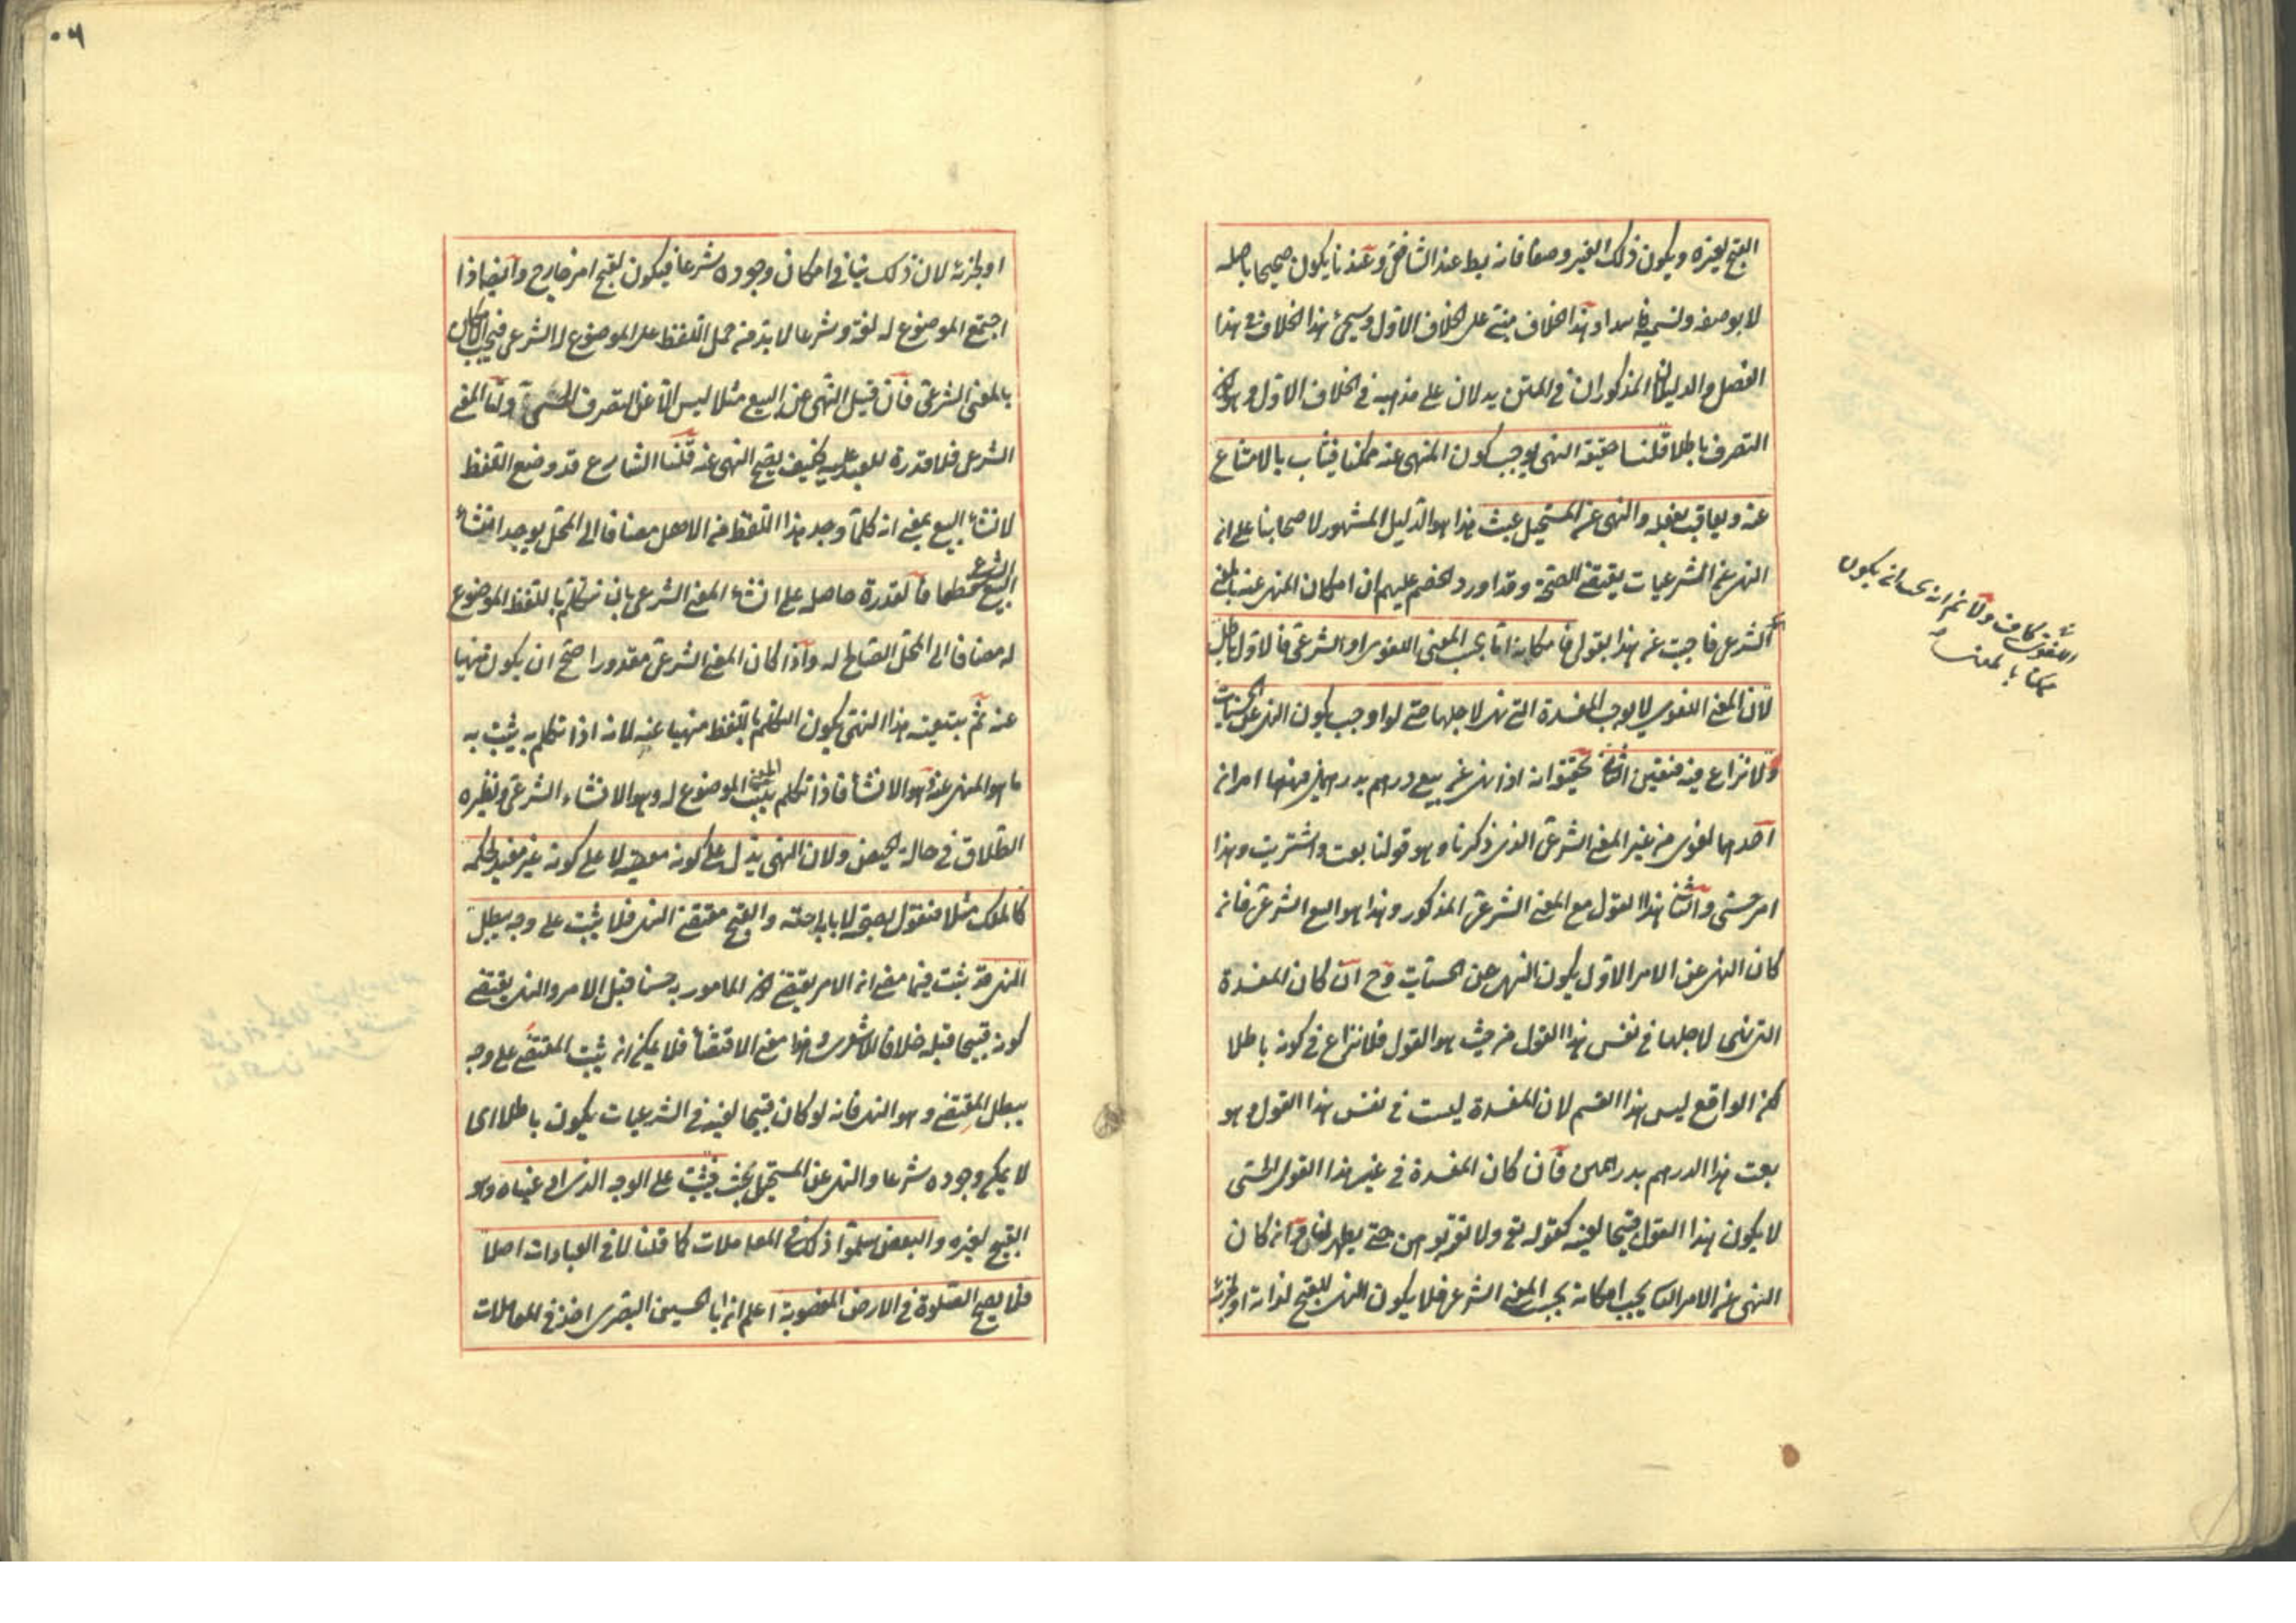 القبح لغيره ويكون ذلك الغير وصفا فانه يبطل عند الشافعي وعندنا يكون صحيحا باصله
لا بوصفه ونسميه فاسدا وهذا الخلاف مبنى على الخلاف الاول وسيجئ هذا الخلاف في هذا
الفصل والدليلان المذكوران في المتن يدلان على مذهبه في الخلاف الاول وهو ان
التصرف باطلا قلنا حقيقة النهى يوجب كون المنهى عنه ممكنا فيثاب بالامتناع
عنه ويعاقب بفعله والنهى عن المستحيل عبث هذا هو الدليل المشهور لاصحابنا على ان
النهى عن الشرعيات يقتضى الصحة وقد اورد الخصم عليهم ان امكان المنهى عنه بالمعنى
الشرعى فاجبت عن هذا بقولى فامكانه اما بحسب المعنى اللغوى او الشرعى فالاول باطل
لان المعنى اللغوى لا يوجب المفسدة التى نهى لاجلها حتى لو اوجب يكون النهى عن الحسيات
ولا نزاع فيه فتعين الثانى تحقيقه انه اذا نهى عن بيع درهم بدرهمين فهنا امران
احدهما لغوى من غير المعنى الشرعى الذى ذكرنا وهو قولنا بعت واشتريت وهذا
امر حسى والثانى هذا القول مع المعنى الشرعى المذكور وهذا هو البيع الشرعى فان
كان النهى عن الامر الاول يكون النهى عن الحسيات وح ان كان المفسدة
التى نهى لاجلها في نفس هذا القول من حيث هو القول فلا نزاع في كونه باطلا
لكن الواقع ليس هذا القسم لان المفسدة ليست في نفس هذا القول وهو
بعت هذا الدرهم بدرهمين فان كان المفسدة في غير هذا القول الحسى
لا يكون هذا القول قبيحا لعينه كقوله تع ولا تقربوهن حتى يطهرن وان كان
النهى عن الامر الثانى يجب امكانه بحسب المعنى الشرعى فلا يكون النهى لقبح لذاته او لجزئه
اللغوى كاف ولا نم انه يحب ان يكون
ممكنا بالمعنى
او لجزئه لان ذلك ينافى امكان وجوده شرعا فيكون لقبح امر خارج وايضا اذا
اجتمع الموضوع له لغة وشرعا لا بد من حمل اللفظ على الموضوع له الشرعى فيجب الامكان
بالمعنى الشرعى فان قيل النهى عن البيع مثلا ليس الا عن التصرف الحسى واما المعنى
الشرعى فلا قدرة للعبد عليه فكيف يصح النهى عنه قلنا الشارع قد وضع اللفظ
لانشاء البيع بمعنى انه كلما وجد هذا اللفظ من الاهل مضافا الى المحل يوجد انشاء
البيع الشرعى قطعا فالقدرة حاصلة على انشاء المعنى الشرعى بان يتكلم باللفظ الموضوع
له مضافا الى المحل الصالح له واذا كان المعنى الشرعى مقدورا صح ان يكون منهيا
عنه ثم بتبعية هذا النهى يكون التكلم باللفظ منهيا عنه لانه اذا تكلم به يثبت به
ما هو المنهى عنه وهو الانشاء فاذا تكلم يثبت المعنى الموضوع له وهو الانشاء الشرعى ونظيره
الطلاق في حالة الحيض ولان النهى يدل على كونه معصية لا على كونه غير مفيد لحكمه
كالملك مثلا فنقول بصحته لا باباحته والقبح مقتضى النهى فلا يثبت على وجه يبطل
النهى قد ثبت فيما مضى ان الامر يقتضى كون المامور به حسنا قبل الامر والنهى يقتضى
كونه قبيحا قبله خلافا للاشعرى وهذا معنى الاقتضاء فلا يمكن ان يثبت المقتضى على وجه
يبطل المقتضى وهو النهى فانه لو كان قبيحا لعينه في الشرعيات يكون باطلا اى
لا يمكن وجوده شرعا والنهى عن المستحيل عبث فيثبت على الوجه الذى ادعيناه وهو
القبح لغيره والبعض سلموا ذلك في المعاملات كما قلنا لا في العبادات اصلا
فلا يصح الصلوة في الارض المغصوبة اعلم ان ابا الحسين البصرى اخذ في المعاملات